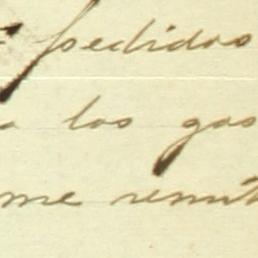 pedidos
a los gas
me remit